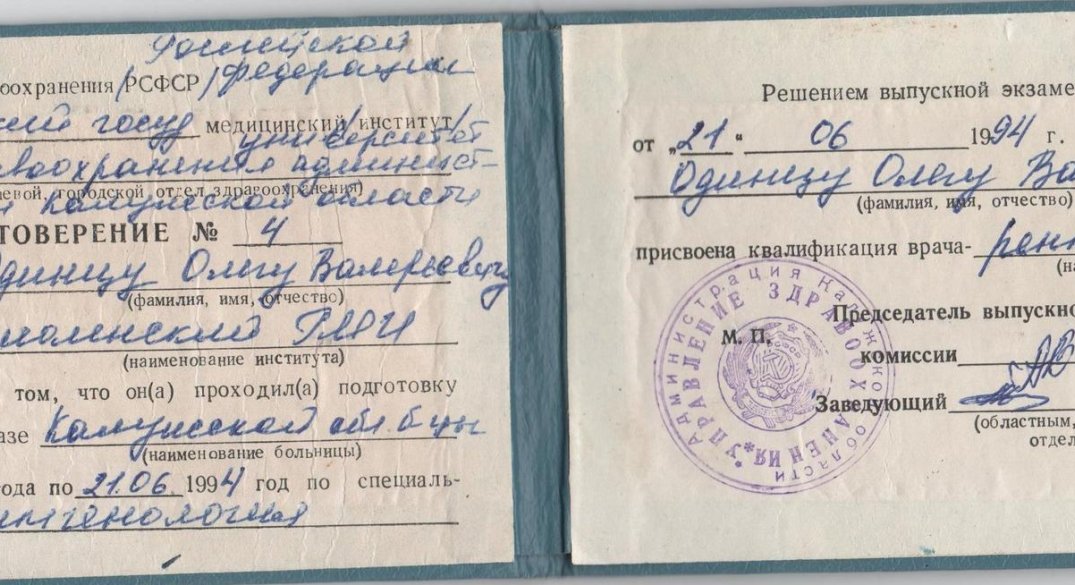 Российской
оохранения /РСФСР/ Федерации
ский госуд медицинский /институт/
университет
воохранения админист-
аевой, городской отдел здравоохранения)
и Калужской области
ТОВЕРЕНИЕ № 4
Одинцу Олегу Валерьевичу
(фамилия, имя, отчество)
моленский ГМИ
(наименование института)
том, что он(а) проходил(а) подготовку
азе Калужской обл. б-цы
(наименование больницы)
года по 21.06 1994 год по специаль-
нтгенология
Решением выпускной экзаме
от „21“ 06 1994 г.
Одинцу Олегу Ва
(фамилия, имя, отчество)
присвоена квалификация врача- рен
(на
Председатель выпускно
М. П.
комиссии
Заведующий
(областным,
отдел
Администрация Калужской области
УПРАВЛЕНИЕ ЗДРАВООХРАНЕНИЯ